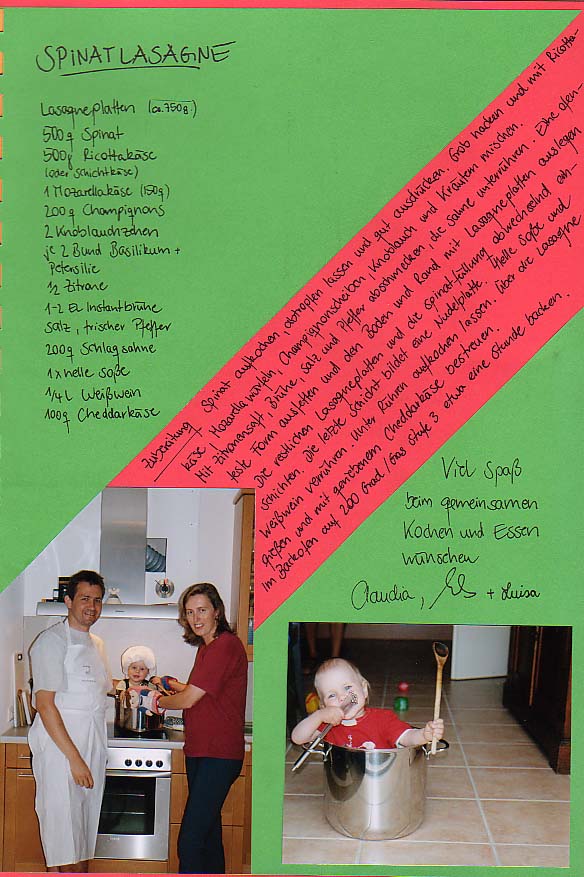 SPINATLASAGNE
Lasagneplatten (ca. 750g.)
500g Spinat
500g Ricottakäse
(oder Schichtkäse)
1 Mozarellakäse (150g)
200g Champignons
2 Knoblauchzehen
je 2 Bund Basilikum +
Petersilie
1/2 Zitrone
1-2 EL Instantbrühe
Salz, frischer Pfeffer
200g Schlagsahne
1x helle Soße
1/4 L Weißwein
100g Cheddarkäse
Zubereitung: Spinat aufkochen, abtropfen lassen und gut ausdrücken. Grob hacken und mit Ricotta-
käse, Mozarella würfeln, Champignonscheiben, Knoblauch und Kräutern mischen.
Mit Zitronensaft, Brühe, Salz und Pfeffer abschmecken, die Sahne unterrühren. Eine ofen-
feste Form ausfetten und den Boden und Rand mit Lasagneplatten auslegen
Die restlichen Lasagneplatten und die Spinatfüllung abwechselnd ein-
schichten. Die letzte Schicht bildet eine Nudelplatte. Helle Soße und
Weißwein verrühren. Unter Rühren aufkochen lassen. Über die Lasagne
gießen und mit geriebenem Cheddarkäse bestreuen.
Im Backofen auf 200 Grad/Gas Stufe 3 etwa eine Stunde backen.
Viel Spaß
beim gemeinsamen
Kochen und Essen
wünschen
Claudia, + Luisa